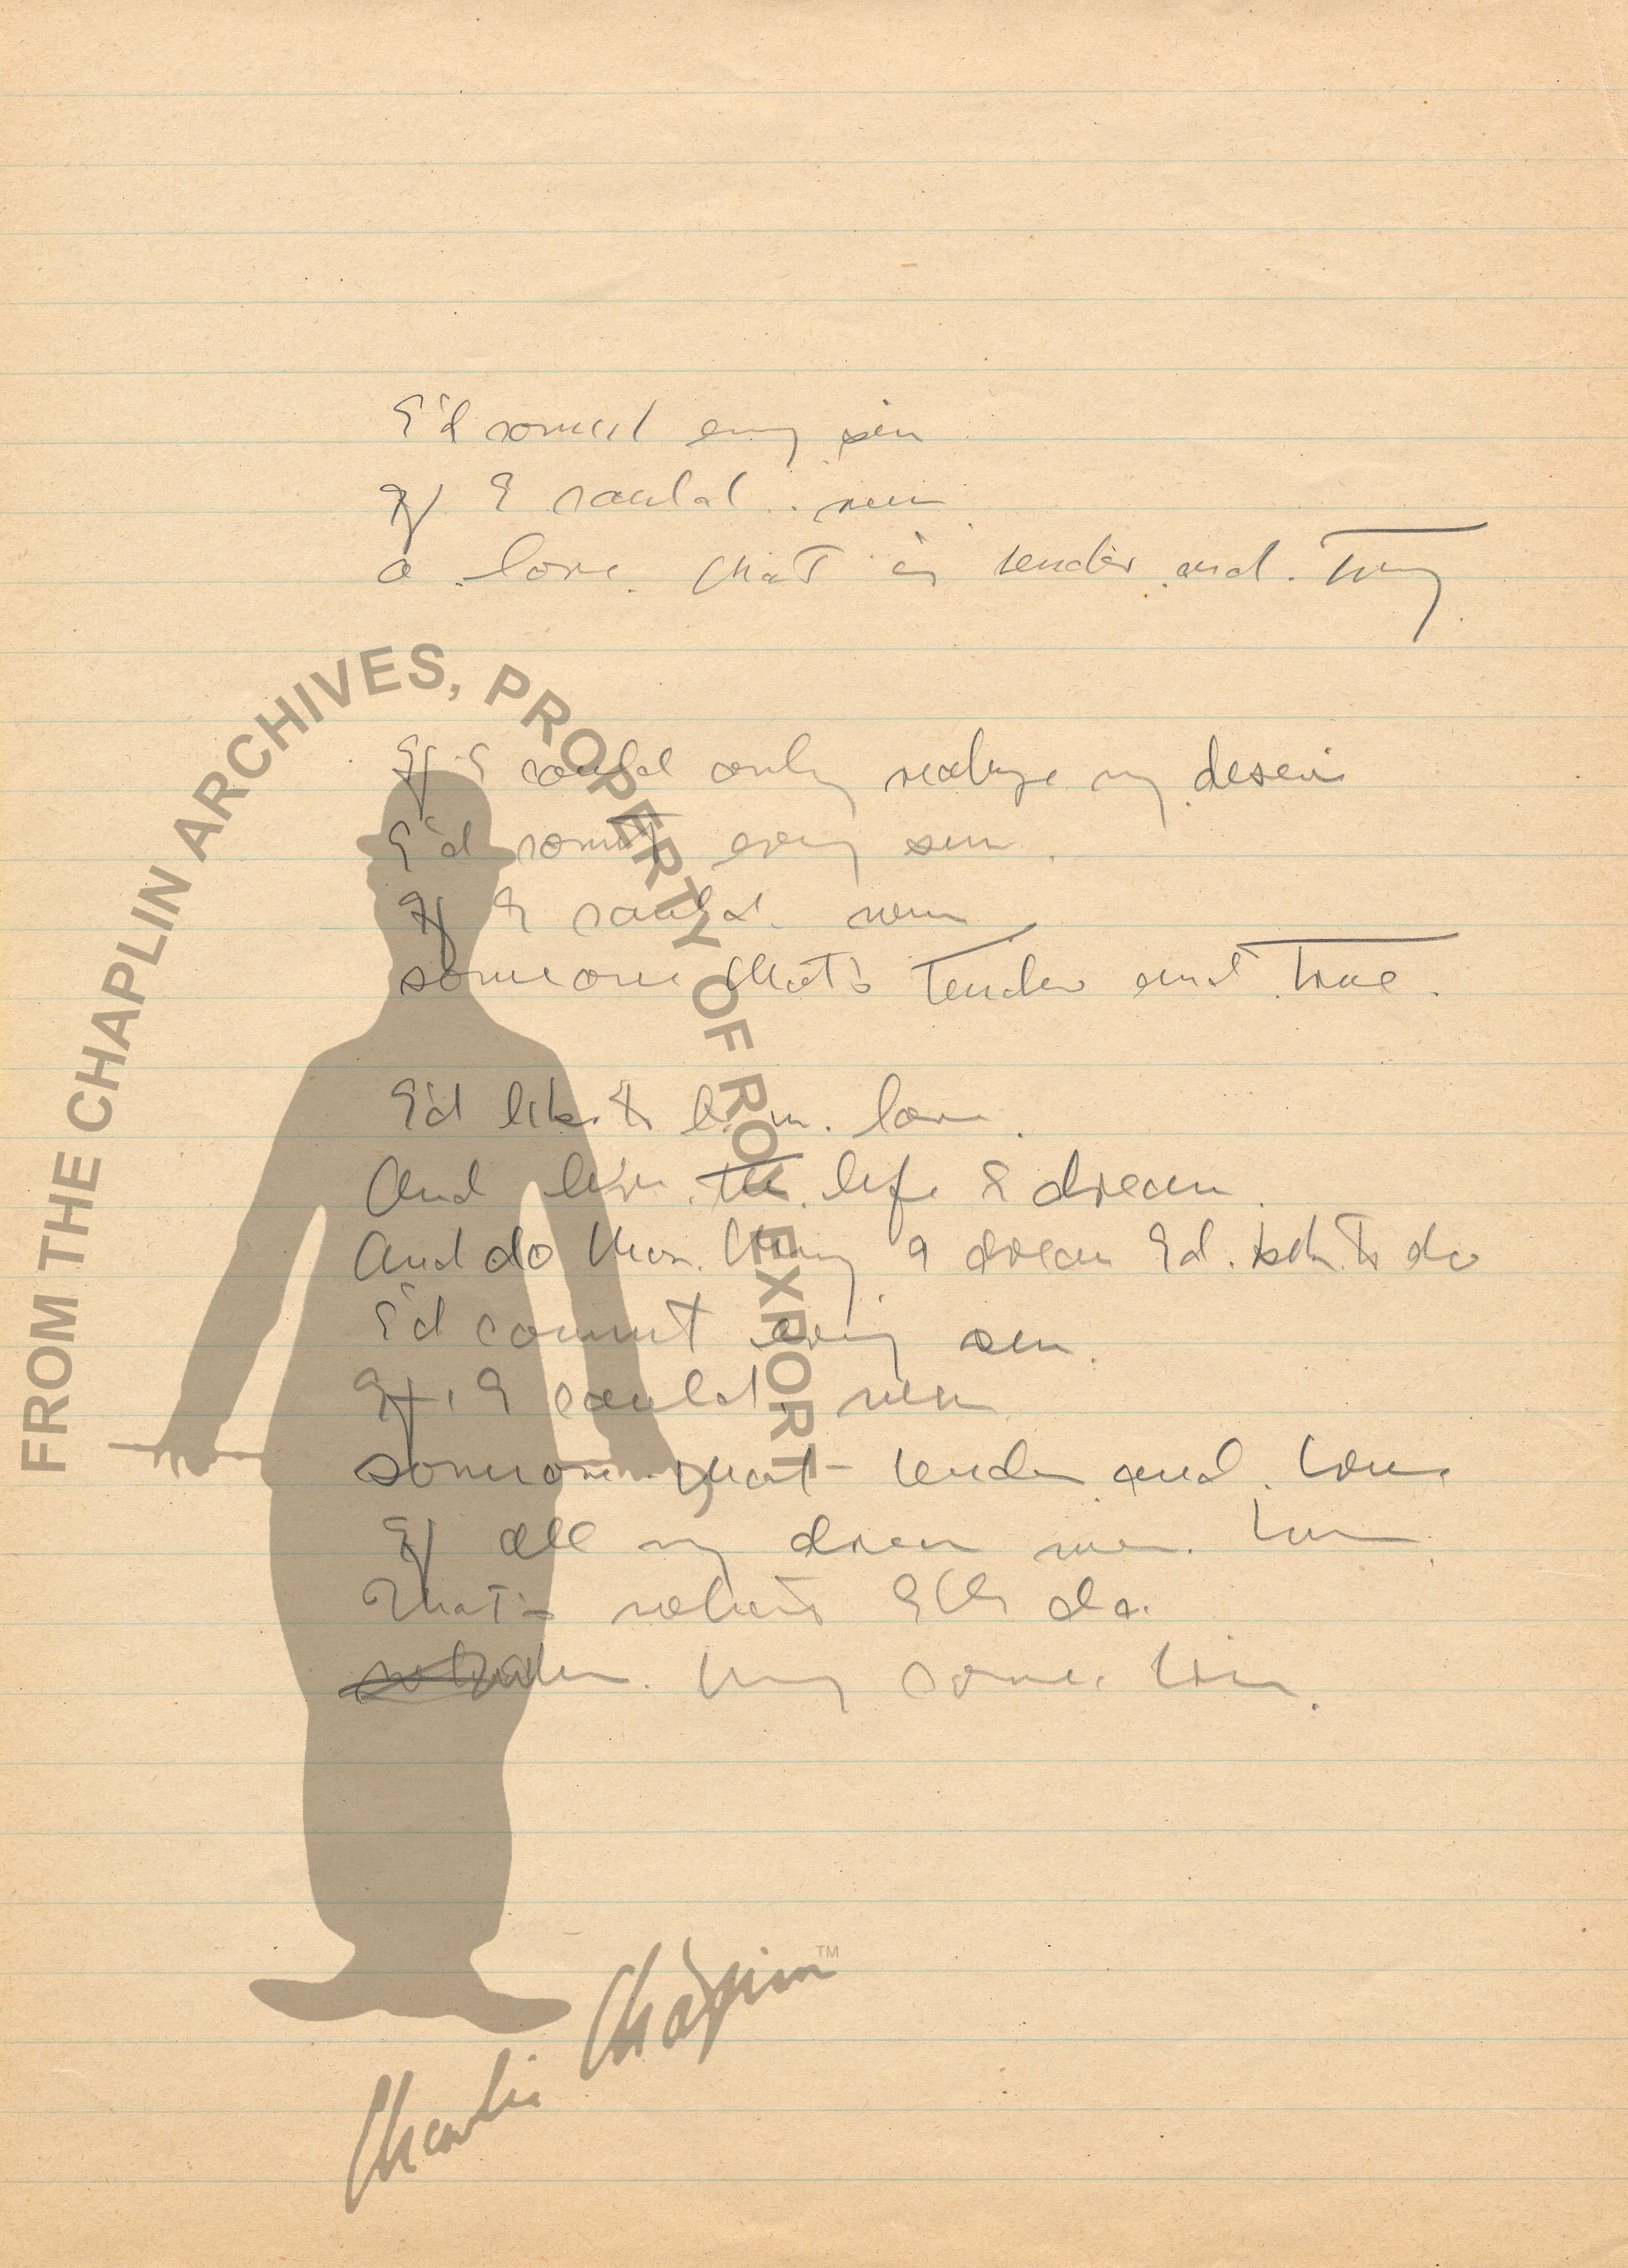 I'd commit every sin
If I could win
a love that is tender and true
If I could only realize my desire
I'd commit every sin
If I could win
someone that's tender and true.
I'd like to be in love.
And live the life I dream
And do the things I dream I'd like to do
I'd commit every sin.
If I could win
someone that tender and true
If all my dream were true
That's what I'd do.
come true.
FROM THE CHAPLIN ARCHIVES, PROPERTY OF ROY EXPORT
Charlie Chaplin™